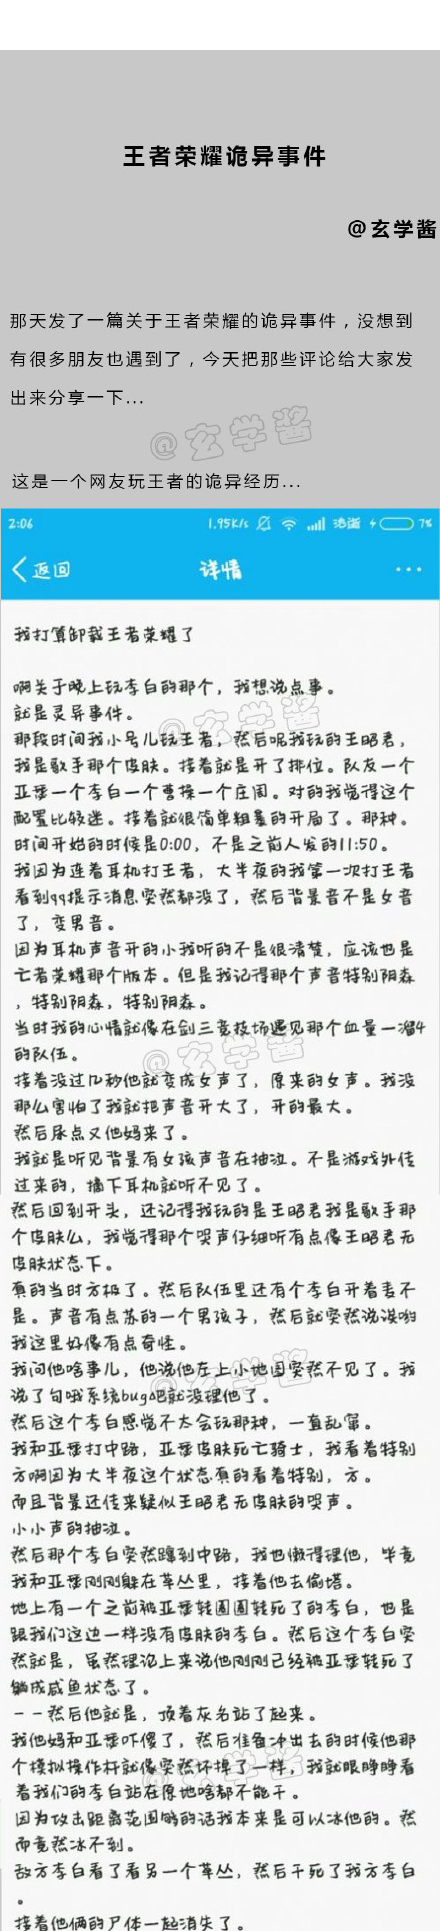 王者荣耀诡异事件
@玄学酱
那天发了一篇关于王者荣耀的诡异事件，没想到
有很多朋友也遇到了，今天把那些评论给大家发
出来分享一下...
@玄学酱
这是一个网友玩王者的诡异经历...
2:06 1.95K/s 7%
返回 详情 ...
我打算卸载王者荣耀了
啊关于晚上玩李白的那个，我想说点事。
就是灵异事件。
@玄学酱
那段时间我小号儿玩王者，然后呢我玩的王昭君，
我是歌手那个皮肤。接着就是开了排位。队友一个
亚瑟一个李白一个曹操一个庄周。对的我觉得这个
配置比较迷。接着就很简单粗暴的开局了。那种。
时间开始的时候是0:00，不是之前人发的11:50。
我因为连着耳机打王者，大半夜的我第一次打王者
看到qq提示消息突然都没了，然后背景音不是女音
了，变男音。
因为耳机声音开的小我听的不是很清楚，应该也是
亡者荣耀那个版本。但是我记得那个声音特别阴森
，特别阴森，特别阴森。
当时我的心情就像在剑三竞技场遇见那个血量一溜4
的队伍。
@玄学酱
接着没过几秒他就变成女声了，原来的女声。我没
那么害怕了我就把声音开大了，开的最大。
然后尿点又他妈来了。
我就是听见背景有女孩声音在抽泣。不是游戏外传
过来的，摘下耳机就听不见了。
然后回到开头，还记得我玩的是王昭君我是歌手那
个皮肤么，我觉得那个哭声仔细听有点像王昭君无
皮肤状态下。
真的当时方极了。然后队伍里还有个李白开着麦不
是。声音有点苏的一个男孩子，然后就突然说诶哟
我这里好像有点奇怪。
@玄学酱
我问他啥事儿，他说他在上小地图突然不见了。我
说了句哦系统bug吧就没理他了。
然后这个李白感觉不太会玩那种，一直乱窜。
我和亚瑟打中路，亚瑟皮肤死亡骑士，我看着特别
方啊因为大半夜这个状态真的看着特别，方。
而且背景还传来疑似王昭君无皮肤的哭声。
小小声的抽泣。
然后那个李白突然蹿到中路，我也懒得理他，毕竟
我和亚瑟刚刚躲在草丛里，接着他去偷塔。
地上有一个之前被亚瑟转圈圈转死了的李白，也是
跟我们这边一样没有皮肤的李白。然后这个李白突
然就是，虽然理论上来说他刚刚已经被亚瑟转死了
躺成咸鱼状态了。
--然后他就是，顶着灰名站了起来。
我他妈和亚瑟吓傻了，然后准备冲出去的时候他那
个模拟操作杆就像突然坏掉了一样，我就眼睁睁看
着我们的李白站在原地啥都不能干。
@玄学酱
因为攻击距离范围够的话我本来是可以冰他的。然
而竟然冰不到。
敌方李白看了看另一个草丛，然后干死了我方李白
。
接着他俩的尸体一起消失了。